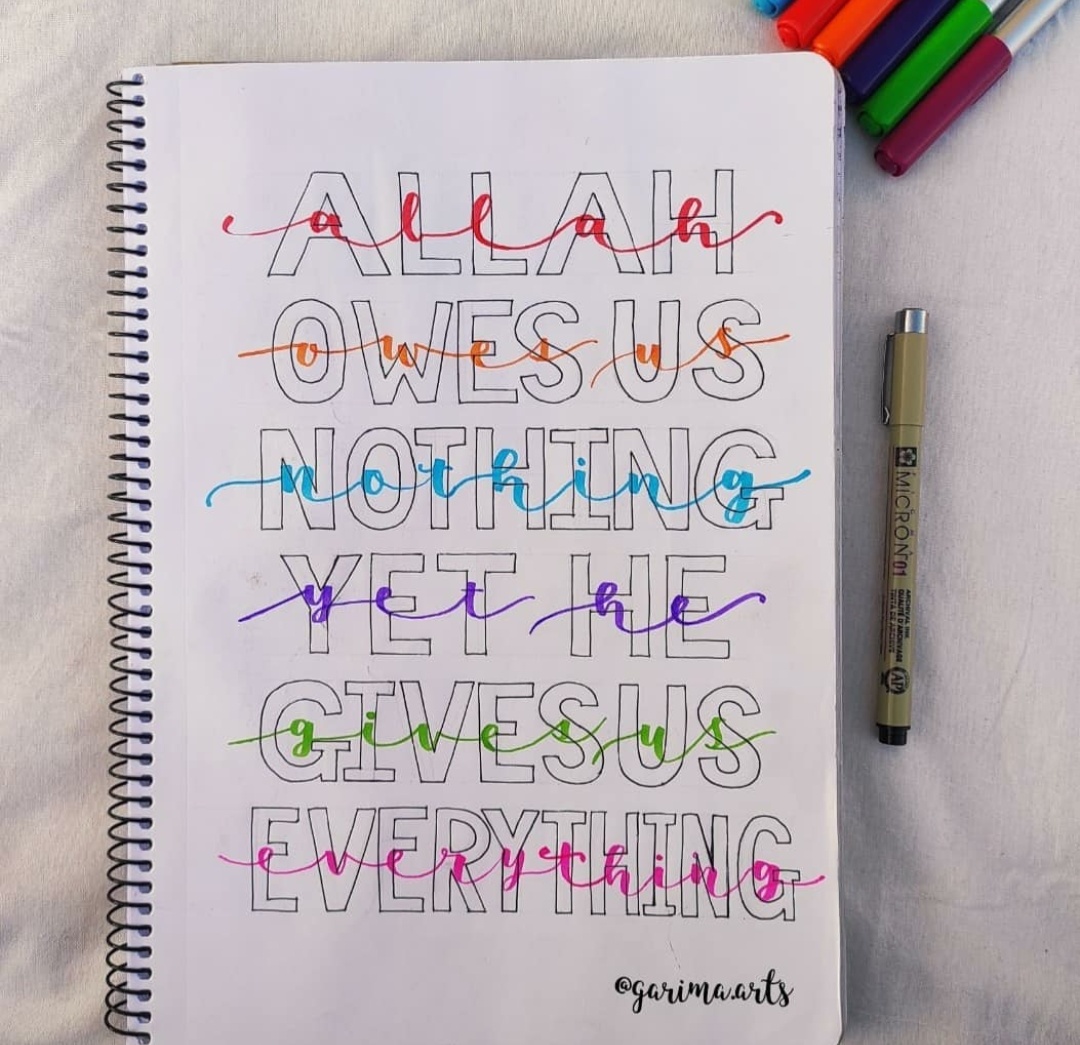 ALLAH
allah
OWES US
owes us
NOTHING
nothing
YET HE
yet he
GIVES US
gives us
EVERYTHING
everything
@garima.arts
MICRON 01
ARCHIVAL INK
QUALITÉ D'ARCHIVAGE
TINTA DE ARCHIVO
AP